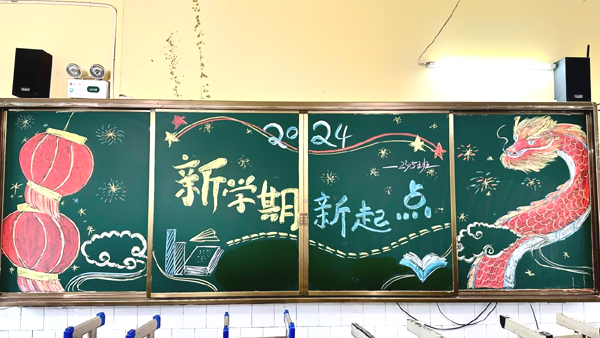 2024
新学期
新起点
—23·5班